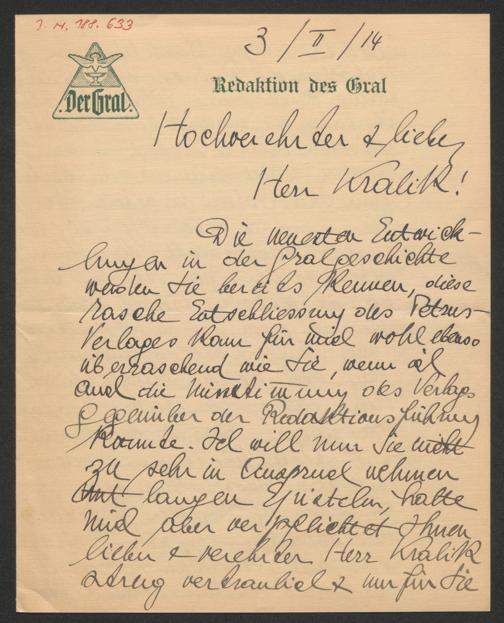 I. N. 188.633
3/II/14
Der Gral.
Redaktion des Gral
Hochverehrter & lieber
Herr Kralik!
Die neuesten Entwick-
lungen in der Gralgeschichte
werden Sie bereits kennen, diese
rasche Entschliessung des Petrus-
Verlages kam für mich wohl ebenso
überraschend wie Sie, wenn ich
auch die Misstimmung des Verlags
gegenüber der Redaktionsführung
kannte. Ich will nun Sie nicht
zu sehr in Anspruch nehmen
mit langen Episteln, halte
mich aber verpflichtet Ihnen
lieber & verehrter Herr Kralik
streng vertraulich & nur für Sie